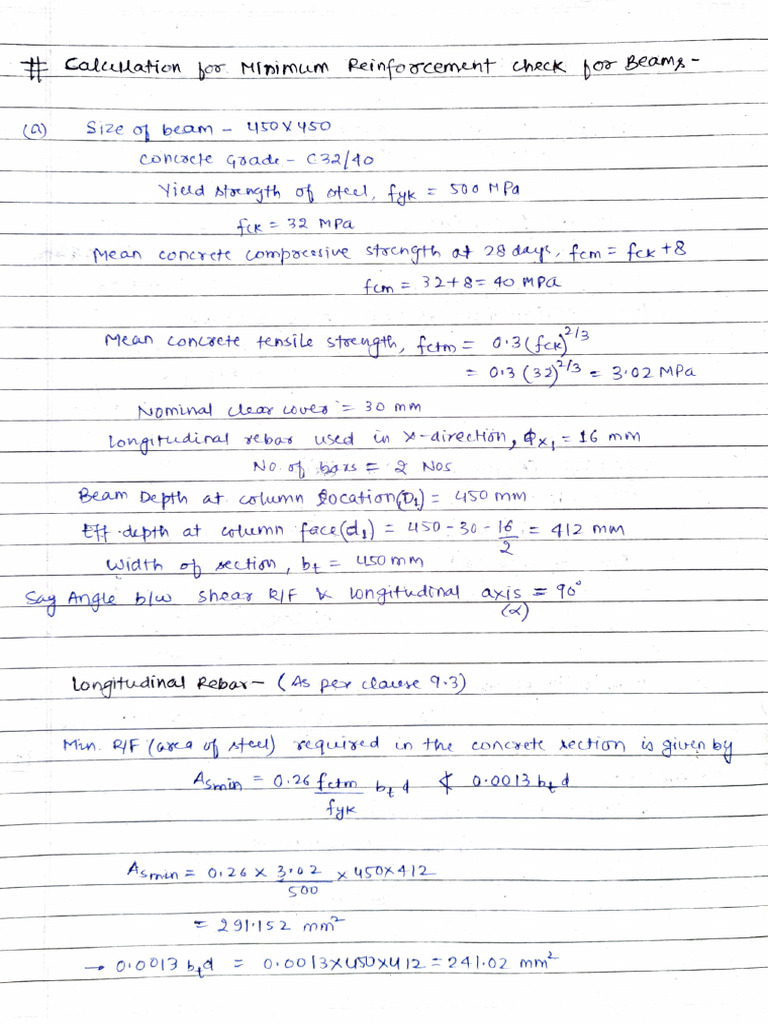 # Calculation for Minimum Reinforcement check for Beams-
(a) Size of beam - 450X450
Concrete Grade - C32/40
Yield strength of steel, fyk = 500 MPa
fck = 32 MPa
Mean concrete compressive strength at 28 days, fcm = fck +8
fcm = 32+8 = 40 MPa
Mean concrete tensile strength, fctm = 0.3(fck)^2/3
= 0.3 (32)^2/3 = 3.02 MPa
Nominal clear cover = 30 mm
Longitudinal rebar used in x-direction, Φx1 = 16 mm
No. of bars = 2 Nos.
Beam Depth at column location(D1) = 450 mm
Eff. depth at column face(d1) = 450-30-16/2 = 412 mm
Width of section, bt = 450mm
Say Angle b/w shear R/F & longitudinal axis = 90°
(α)
Longitudinal Rebar- (As per clause 9.3)
Min. R/F (area of steel) required in the concrete section is given by
Asmin = 0.26 fctm/fyk bt d ≮ 0.0013 bt d
Asmin = 0.26 x 3.02/500 x 450x412
= 291.152 mm²
→ 0.0013 btd = 0.0013x450x412 = 241.02 mm²